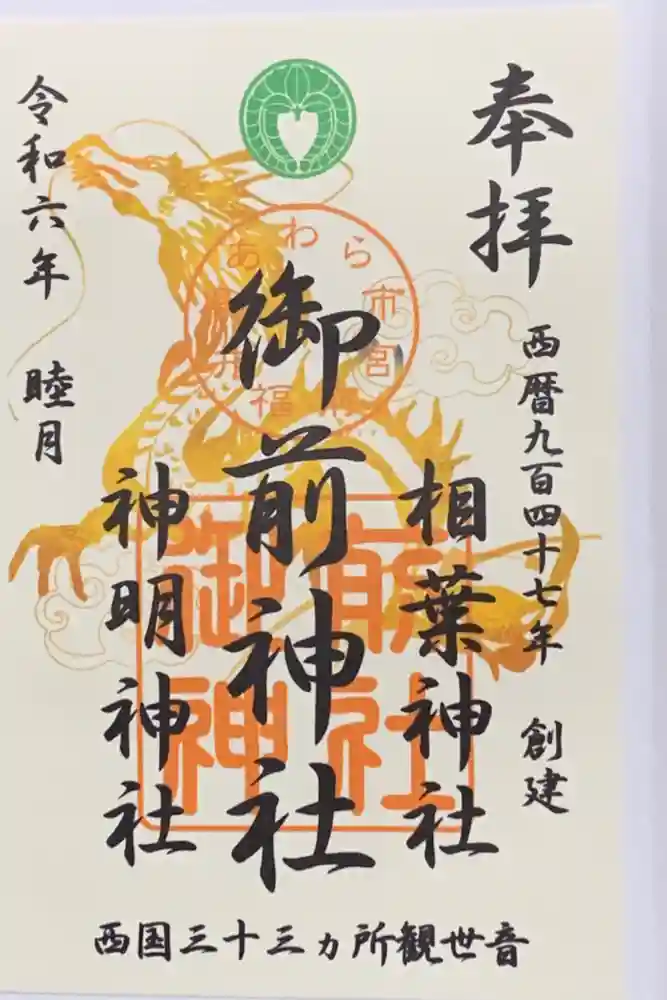 奉拝
西暦九百四十七年 創建
相葉神社
御前神社
神明神社
令和六年 睦月
西国三十三ヵ所観世音
あわら
市宮
福
御前
神社